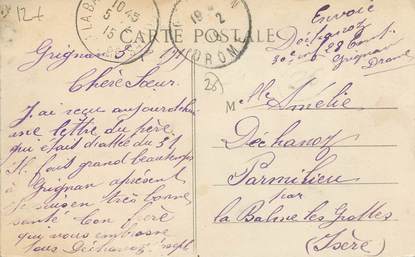 12+
LA BA
10 45
5
15
19 2
DROM
CARTE POSTALE
Envoie
Déchanoz
28
Grignan
Drome
Grignan 3
Chère Sœur
J'ai reçu aujourdhui
une lettre du père
qui était datée du 31
Il fait grand beautemps
à Grignan aprésent
Je suis en très bonne
santé Ton frère
qui vous embrasse
tous Déchanoz
Mlle Amélie
Déchanoz
Parmilieu
par
la Balme les Grottes
(Isère)